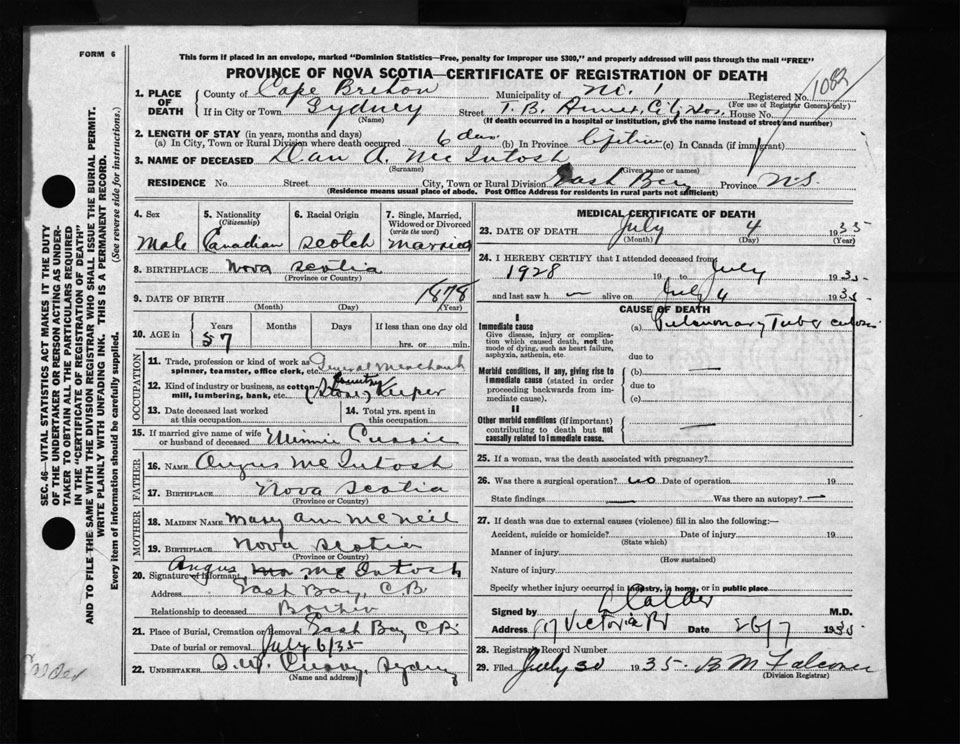 FORM 6
This form if placed in an envelope, marked "Dominion Statistics—Free, penalty for improper use $300," and properly addressed will pass through the mail "FREE"
PROVINCE OF NOVA SCOTIA—CERTIFICATE OF REGISTRATION OF DEATH
1082
1. PLACE OF DEATH County of Cape Breton Municipality of No. 1 Registered No.
(For use of Registrar General only)
If in City or Town Sydney Street T. B. Annex, City Hos. House No.
(Name) (If death occurred in a hospital or institution, give the name instead of street and number)
2. LENGTH OF STAY (in years, months and days)
(a) In City, Town or Rural Division where death occurred 6 das. (b) In Province lifetime (c) In Canada (if immigrant)
3. NAME OF DECEASED Dan A. McIntosh
(Surname) (Given name or names)
RESIDENCE No. Street City, Town or Rural Division East Bay Province N.S
(Residence means usual place of abode. Post Office Address for residents in rural parts not sufficient)
4. Sex 5. Nationality (Citizenship) 6. Racial Origin 7. Single, Married, Widowed or Divorced (write the word)
Male Canadian Scotch Married
8. BIRTHPLACE Nova Scotia
(Province or Country)
9. DATE OF BIRTH 1878
(Month) (Day) (Year)
10. AGE in Years Months Days If less than one day
57 hrs. or min.
OCCUPATION
11. Trade, profession or kind of work as spinner, teamster, office clerk, etc. General Merchant
12. Kind of industry or business, as cotton-mill, lumbering, bank, etc. (Country Store) Keeper
13. Date deceased last worked at this occupation 14. Total yrs. spent in this occupation
15. If married give name of wife or husband of deceased Minnie Currie
FATHER
16. NAME Angus McIntosh
17. BIRTHPLACE Nova Scotia
(Province or Country)
MOTHER
18. MAIDEN NAME Mary Ann McNeil
19. BIRTHPLACE Nova Scotia
(Province or Country)
20. Signature of Informant Angus McIntosh
Address East Bay, C.B
Relationship to deceased Brother
21. Place of Burial, Cremation or Removal East Bay C.B.
Date of burial or removal July 6/35
22. UNDERTAKER Sydney
(Name and address)
MEDICAL CERTIFICATE OF DEATH
23. DATE OF DEATH July 4 1935
(Month) (Day) (Year)
24. I HEREBY CERTIFY that I attended deceased from
1928 19 to July 1935
and last saw h alive on July 4 1935
CAUSE OF DEATH
I
Immediate cause (a) Pulmonary Tuberculosis
Give disease, injury or complication which caused death, not the mode of dying, such as heart failure, asphyxia, asthenia, etc.
due to
Morbid conditions, if any, giving rise to immediate cause (stated in order proceeding backwards from immediate cause). (b) —
due to
(c)
II
Other morbid conditions (if important) contributing to death but not causally related to immediate cause. —
25. If a woman, was the death associated with pregnancy?
26. Was there a surgical operation? no Date of operation 19
State findings — Was there an autopsy? —
27. If death was due to external causes (violence) fill in also the following:—
Accident, suicide or homicide? Date of injury 19
(State which)
Manner of injury
(How sustained)
Nature of injury
Specify whether injury occurred in industry, in home, or in public place
Signed by Calder M.D.
Address Victoria Rd Date 26/7 1935
28. Registrar's Record Number
29. Filed July 30 1935. B M Falconer
(Division Registrar)
SEC. 46—VITAL STATISTICS ACT MAKES IT THE DUTY OF THE UNDERTAKER OR PERSON ACTING AS UNDERTAKER TO OBTAIN ALL THE PARTICULARS REQUIRED IN THE "CERTIFICATE OF REGISTRATION OF DEATH" AND TO FILE THE SAME WITH THE DIVISION REGISTRAR WHO SHALL ISSUE THE BURIAL PERMIT.
WRITE PLAINLY WITH UNFADING INK. THIS IS A PERMANENT RECORD.
Every item of information should be carefully supplied. (See reverse side for instructions.)
Calder